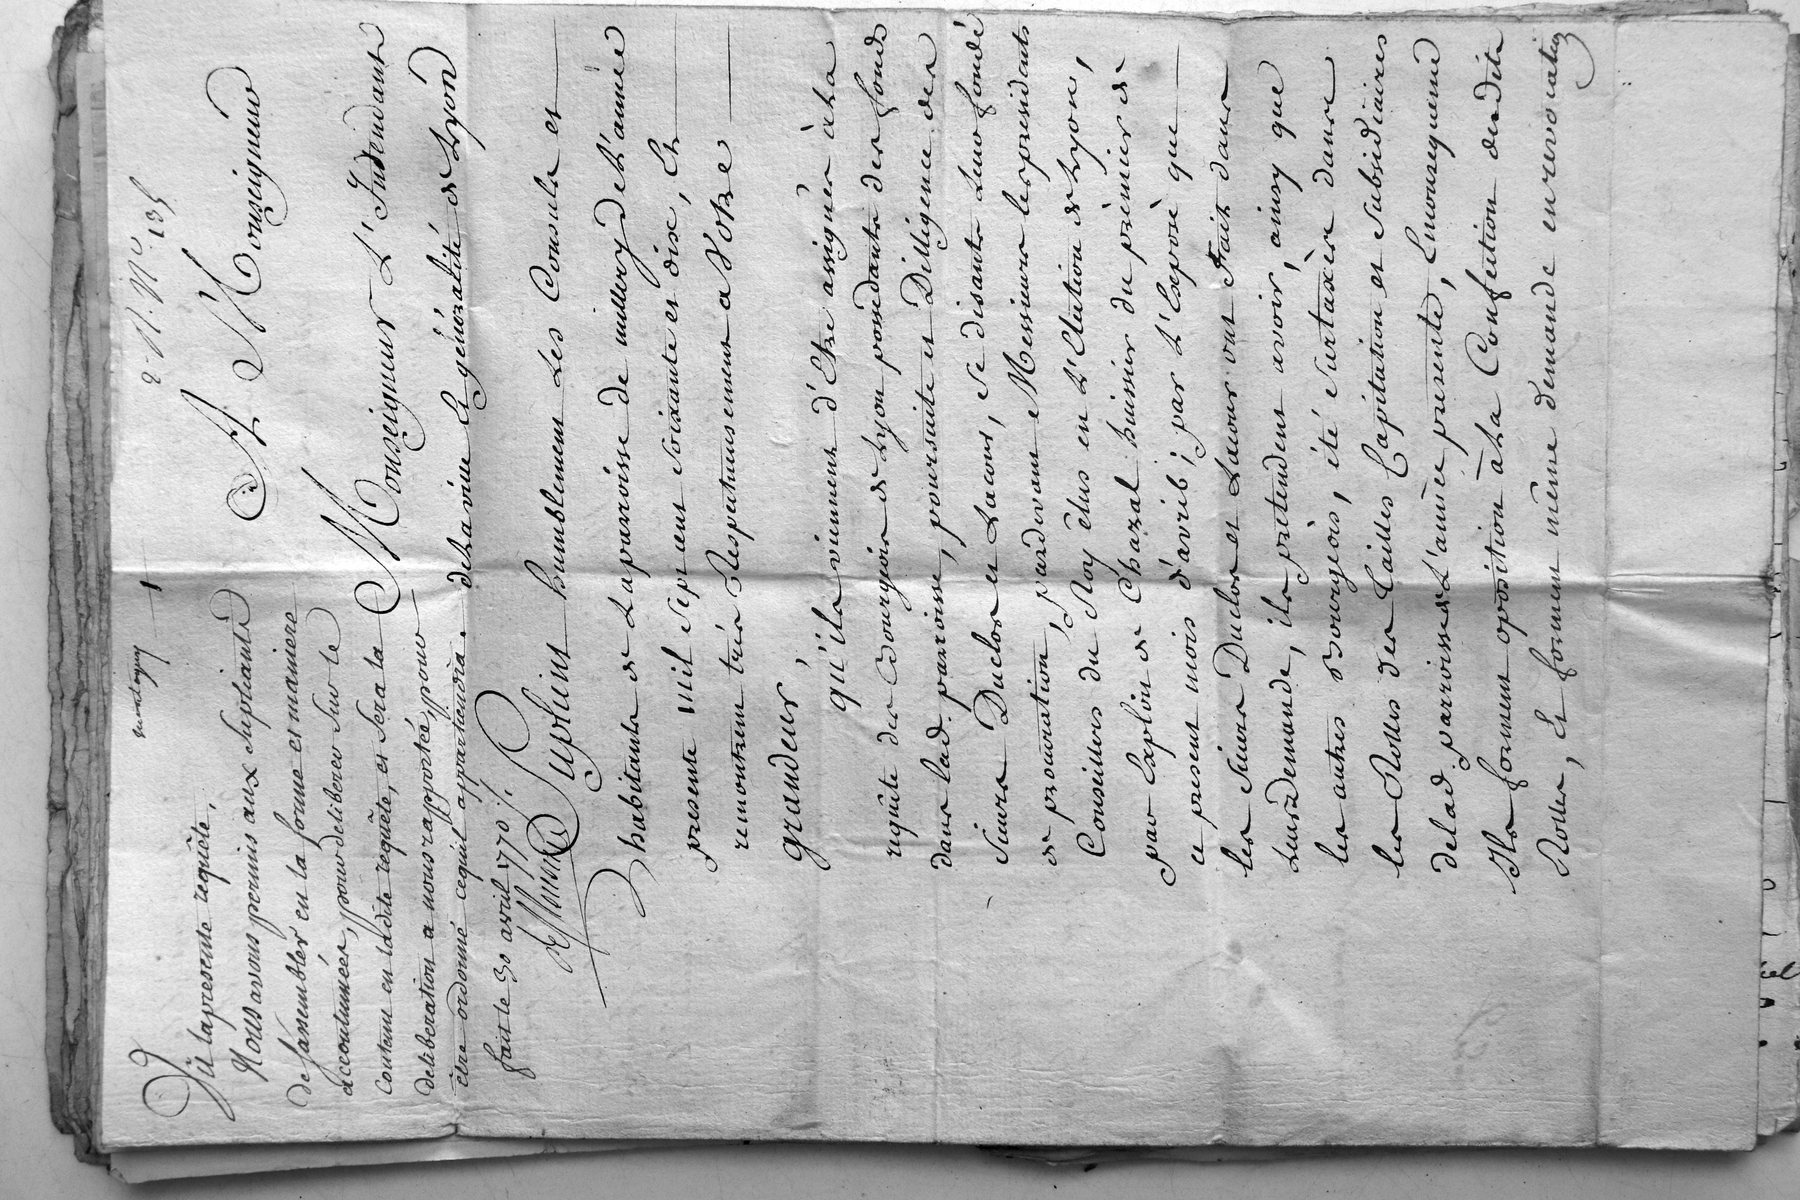 2. N. No. 135
A Monseigneur
Monseigneur L'Intendant
de La ville & généralité de Lyon
Suplient humblement Les Consuls et
habitants de La parroisse de millery de L'année
presente mil sept cent soixante et dix, Et
remontrent trés Respectueusement a Votre
grandeur,
qu'ils viennent d'Etre assignés à La
requête des Bourgeois de Lyon possedants des fonds
dans lad. parroisse, poursuite et Dilligence des
Sieurs Duclos et Lacour, se disants Leur fondé
de procuration, pardevant Messieurs les presidents
Conseillers du Roy élus en L'Election de Lyon,
par Exploit de Chazal huissier du prémier de
ce present mois d'avril; par L'Exposé que
les Sieurs Duclos et Lacour ont Fait dans
Leurs Demande, ils pretendent avoir, ainsy que
les autres Bourgeois, été surtaxés dans
les Rolles des Tailles Capitation et subsidiaires
de lad. parroisse L'année presente, Encequence
Ils forment oposition à La Confection desdits
Rolles, Et forment même demande en revocation
Vû la presente requête.
Nous avons permis aux supliants
de s'assembler en la forme et maniere
accoutumées, pour deliberer sur le
contenu en ladite requête, et sera la
deliberation a nous rapportée, pour
être ordonné ce qu'il apartiendra.
fait le 30 avril 1770